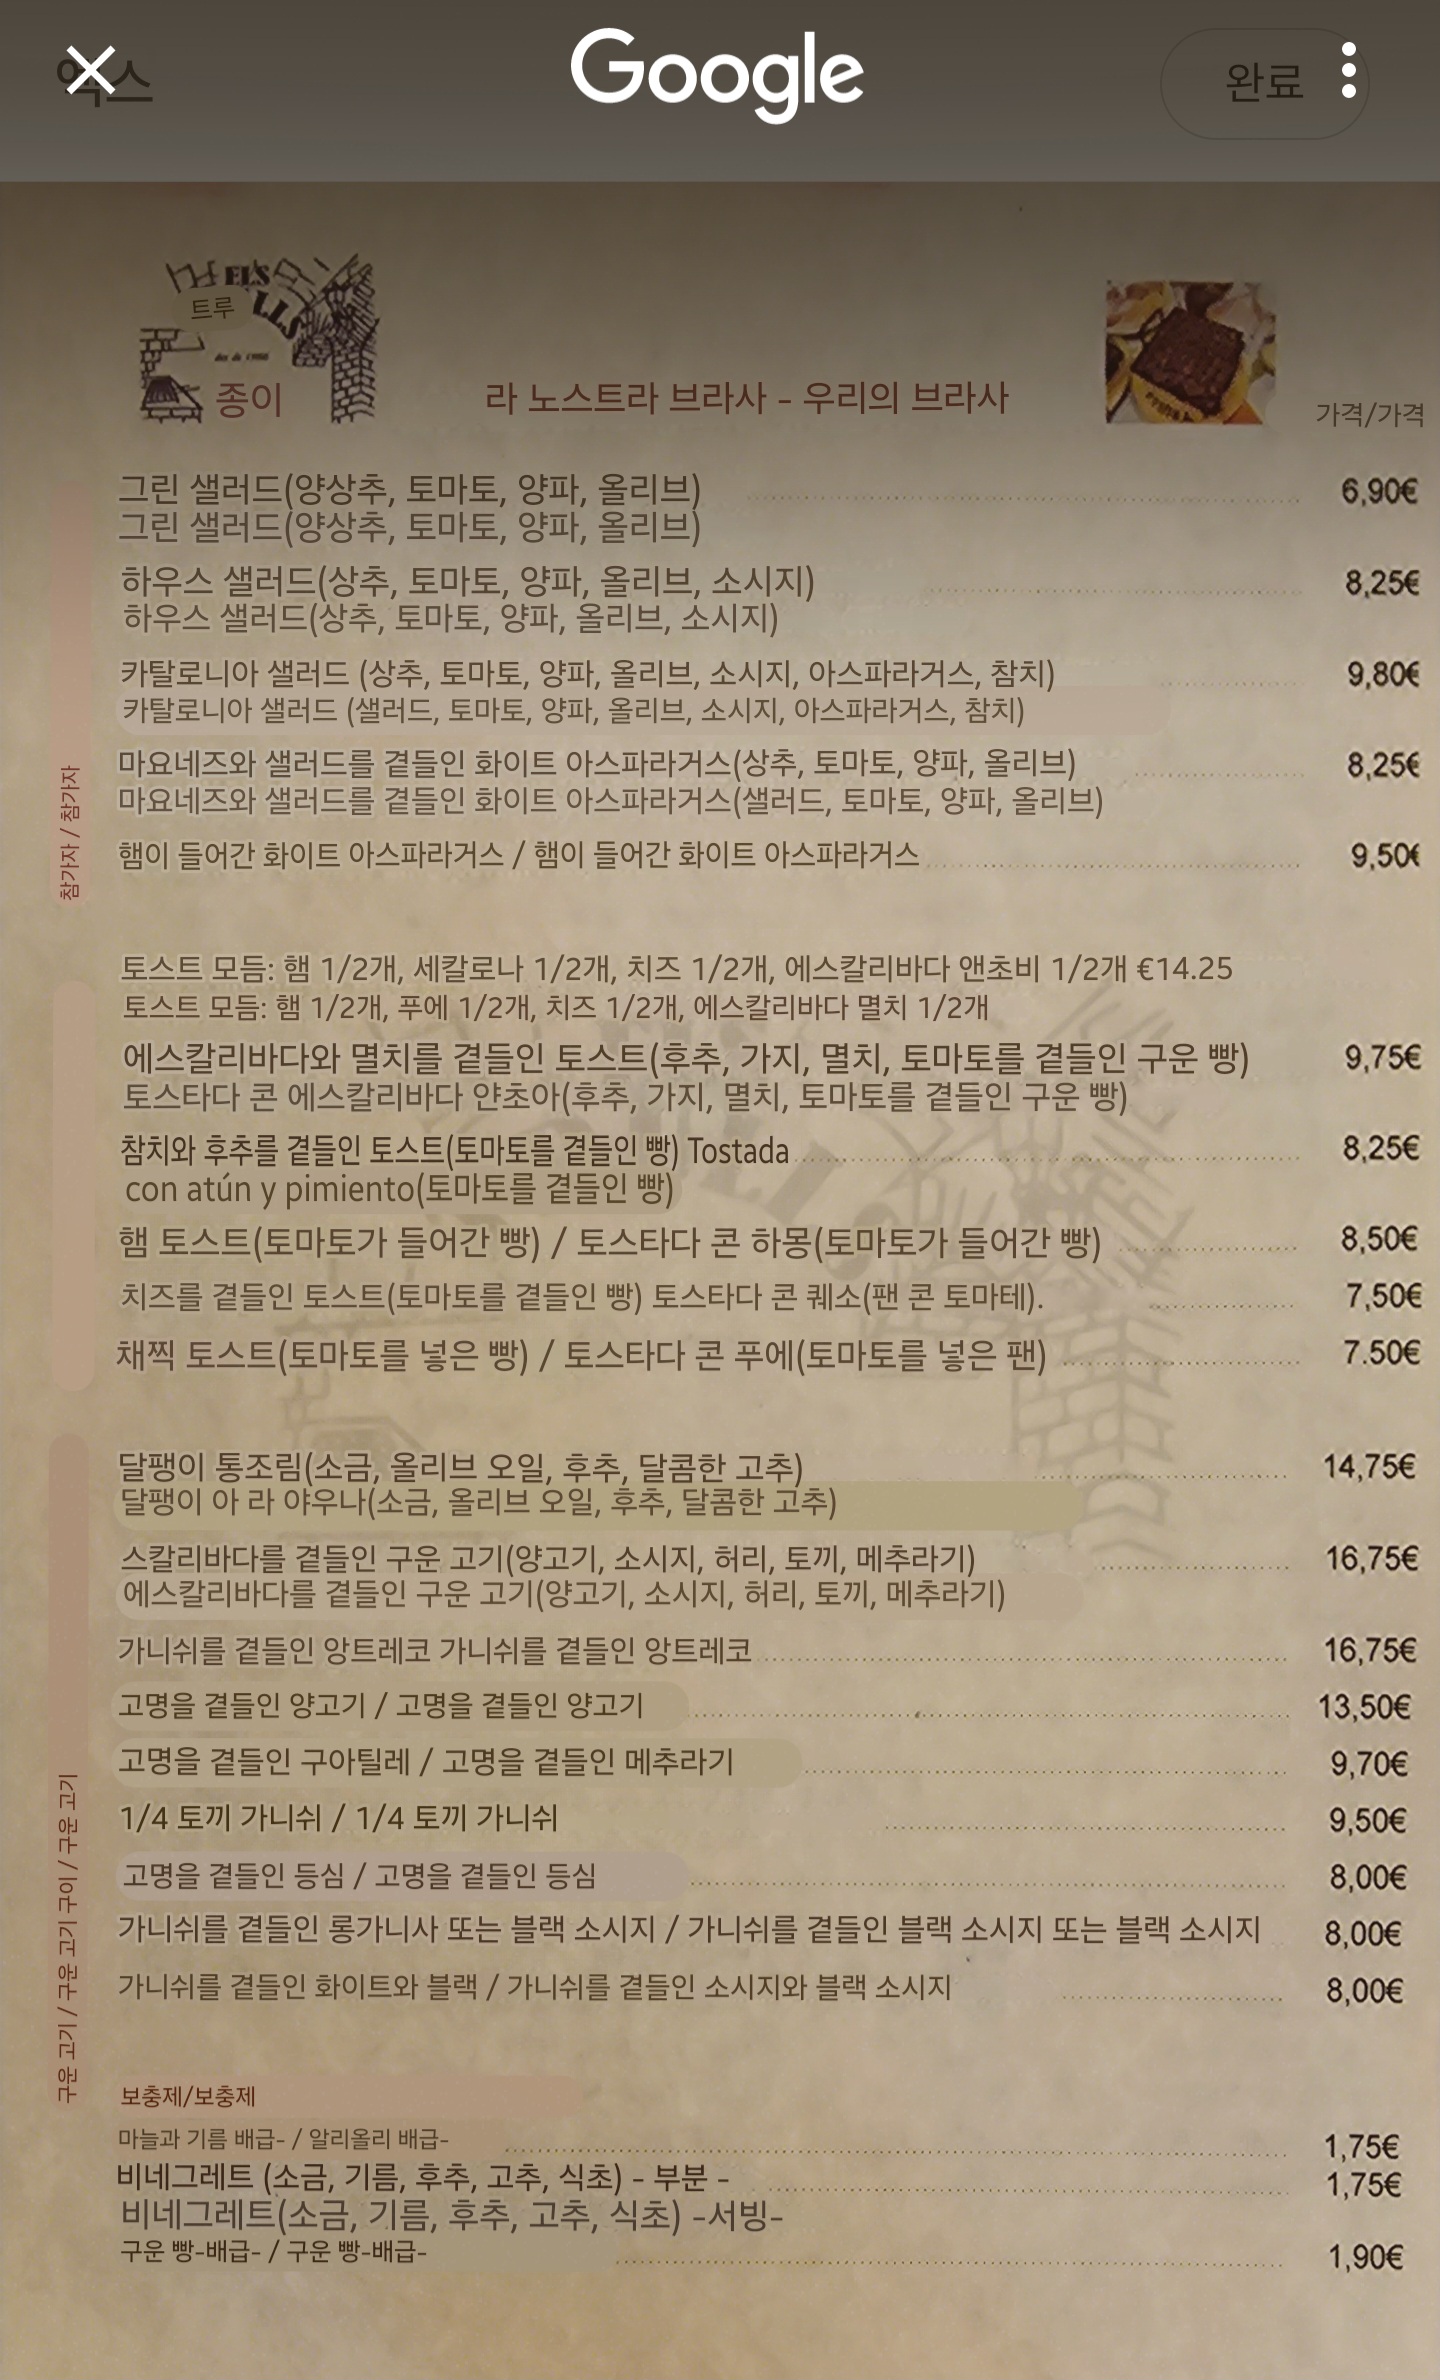 엑스
Google
완료
ELS
트루
LLS
des de 1998
종이
라 노스트라 브라사 - 우리의 브라사
가격/가격
그린 샐러드(양상추, 토마토, 양파, 올리브) 6,90€
그린 샐러드(양상추, 토마토, 양파, 올리브)
하우스 샐러드(상추, 토마토, 양파, 올리브, 소시지) 8,25€
하우스 샐러드(상추, 토마토, 양파, 올리브, 소시지)
카탈로니아 샐러드 (상추, 토마토, 양파, 올리브, 소시지, 아스파라거스, 참치) 9,80€
카탈로니아 샐러드 (샐러드, 토마토, 양파, 올리브, 소시지, 아스파라거스, 참치)
마요네즈와 샐러드를 곁들인 화이트 아스파라거스(상추, 토마토, 양파, 올리브) 8,25€
마요네즈와 샐러드를 곁들인 화이트 아스파라거스(샐러드, 토마토, 양파, 올리브)
햄이 들어간 화이트 아스파라거스 / 햄이 들어간 화이트 아스파라거스 9,50€
참가자 / 참가자
토스트 모듬: 햄 1/2개, 세칼로나 1/2개, 치즈 1/2개, 에스칼리바다 앤초비 1/2개 €14.25
토스트 모듬: 햄 1/2개, 푸에 1/2개, 치즈 1/2개, 에스칼리바다 멸치 1/2개
에스칼리바다와 멸치를 곁들인 토스트(후추, 가지, 멸치, 토마토를 곁들인 구운 빵) 9,75€
토스타다 콘 에스칼리바다 얀초아(후추, 가지, 멸치, 토마토를 곁들인 구운 빵)
참치와 후추를 곁들인 토스트(토마토를 곁들인 빵) Tostada 8,25€
con atún y pimiento(토마토를 곁들인 빵)
햄 토스트(토마토가 들어간 빵) / 토스타다 콘 하몽(토마토가 들어간 빵) 8,50€
치즈를 곁들인 토스트(토마토를 곁들인 빵) 토스타다 콘 퀘소(팬 콘 토마테). 7,50€
채찍 토스트(토마토를 넣은 빵) / 토스타다 콘 푸에(토마토를 넣은 팬) 7.50€
달팽이 통조림(소금, 올리브 오일, 후추, 달콤한 고추) 14,75€
달팽이 아 라 야우나(소금, 올리브 오일, 후추, 달콤한 고추)
스칼리바다를 곁들인 구운 고기(양고기, 소시지, 허리, 토끼, 메추라기) 16,75€
에스칼리바다를 곁들인 구운 고기(양고기, 소시지, 허리, 토끼, 메추라기)
가니쉬를 곁들인 앙트레코 가니쉬를 곁들인 앙트레코 16,75€
고명을 곁들인 양고기 / 고명을 곁들인 양고기 13,50€
고명을 곁들인 구아틸레 / 고명을 곁들인 메추라기 9,70€
1/4 토끼 가니쉬 / 1/4 토끼 가니쉬 9,50€
고명을 곁들인 등심 / 고명을 곁들인 등심 8,00€
가니쉬를 곁들인 롱가니사 또는 블랙 소시지 / 가니쉬를 곁들인 블랙 소시지 또는 블랙 소시지 8,00€
가니쉬를 곁들인 화이트와 블랙 / 가니쉬를 곁들인 소시지와 블랙 소시지 8,00€
구운 고기 / 구운 고기 구이 / 구운 고기
보충제/보충제
마늘과 기름 배급- / 알리올리 배급- 1,75€
비네그레트 (소금, 기름, 후추, 고추, 식초) - 부분 - 1,75€
비네그레트(소금, 기름, 후추, 고추, 식초) -서빙-
구운 빵-배급- / 구운 빵-배급- 1,90€